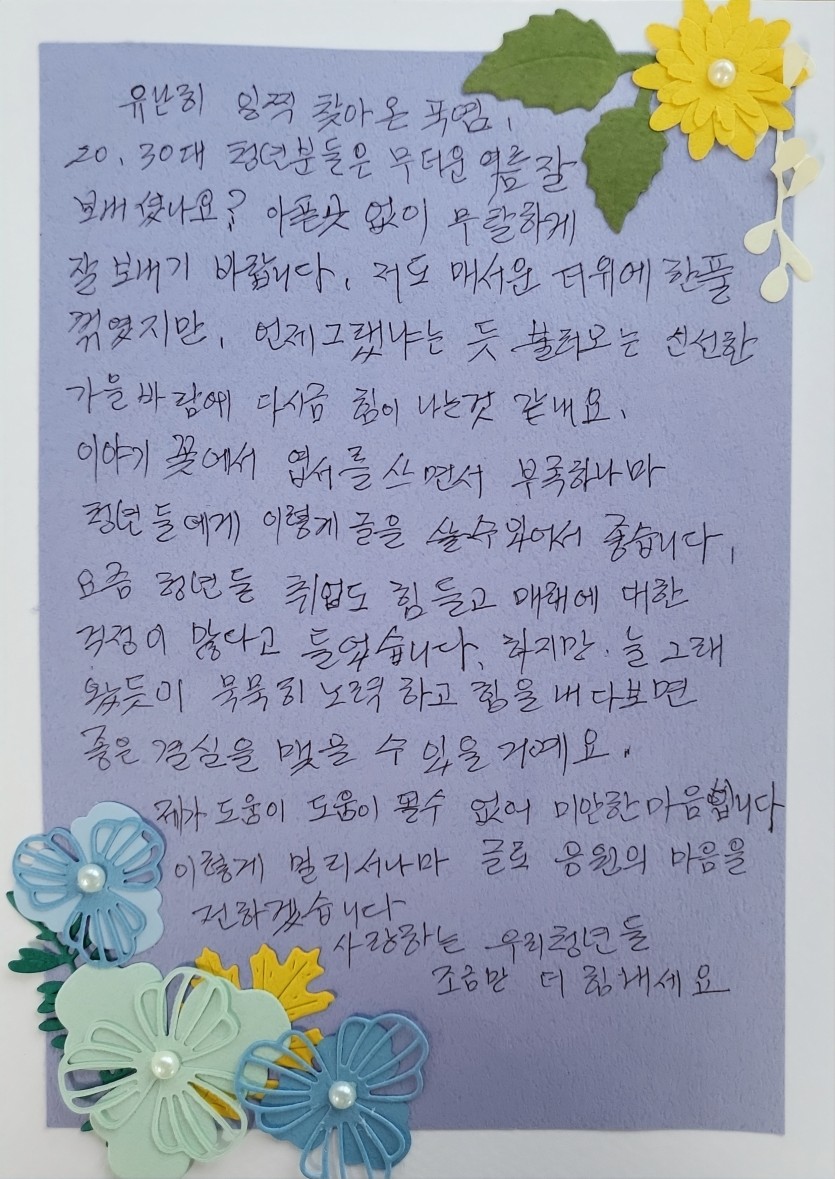 유난히 일찍 찾아온 폭염,
20, 30대 청년분들은 무더운 여름 잘
보내셨나요? 아픈곳 없이 무탈하게
잘 보내기 바랍니다. 저도 매서운 더위에 한풀
꺾였지만, 언제그랬냐는 듯 불려오는 신선한
가을바람에 다시금 힘이 나는것 같네요.
이야기 꽃에서 엽서를 쓰면서 부족하나마
청년들에게 이렇게 글을 쓸수 있어서 좋습니다.
요즘 청년들 취업도 힘들고 매래에 대한
걱정이 많다고 들었습니다. 하지만 늘 그래
왔듯이 묵묵히 노력하고 힘을 내다보면
좋은 결실을 맺을 수 있을 거예요.
제가 도움이 도움이 될수 없어 미안한마음입니다
이렇게 멀리서나마 글로 응원의 마음을
전하겠습니다
사랑하는 우리청년들
조금만 더 힘내세요